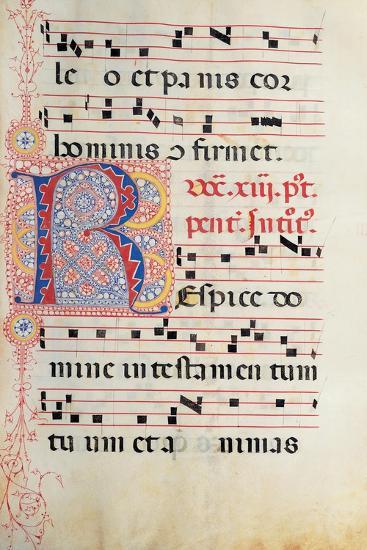 le o et panis cor
hominis ofirmet.
Dōc. xiij. pꝰt.
pent. Introitꝰ.
Respice do
mine in testamentum
tuum et a nimas